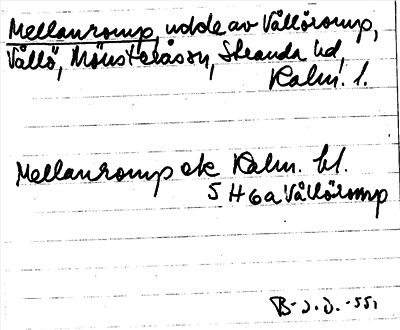 Mellanromp, udde av Vållöromp,
Vållö, Mönsterås sn, Stranda hd,
Kalm. l.
Mellanromp ek Kalm. bl.
5 H 6a Vållöromp